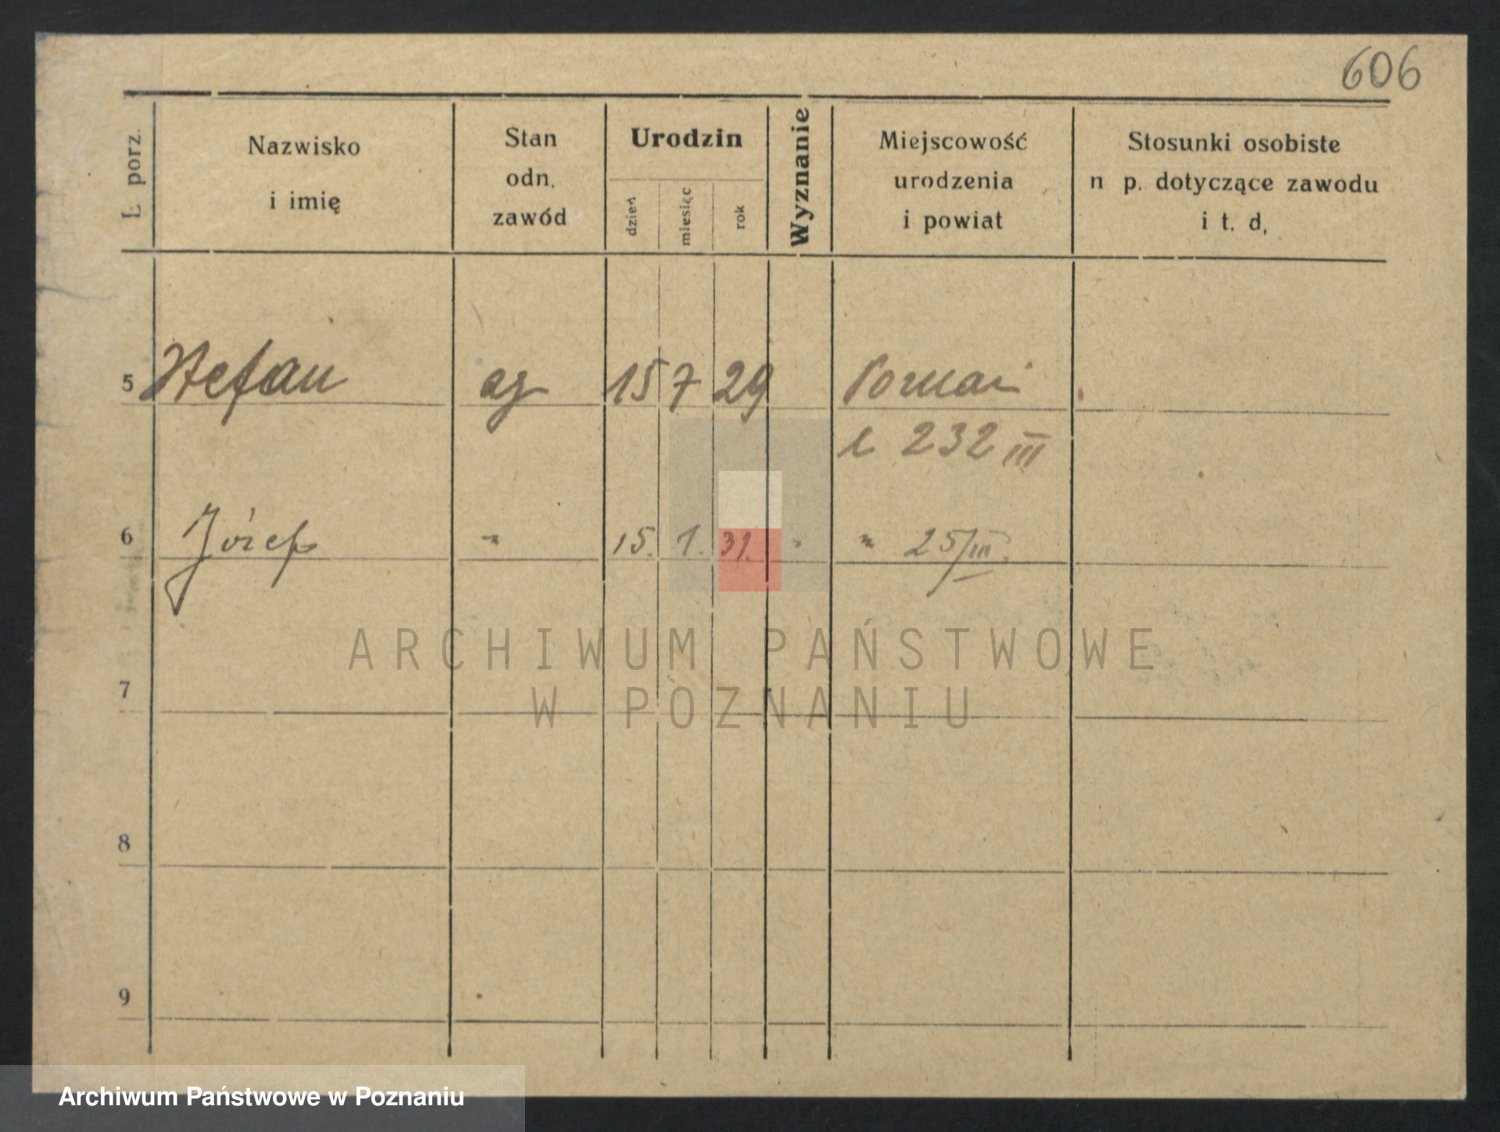 606
L. porz.
Nazwisko
i imię
Stan
odn.
zawód
Urodzin
dzień
miesięc
rok
Wyznanie
Miejscowość
urodzenia
i powiat
Stosunki osobiste
n p. dotyczące zawodu
i t. d.
5 Stefan 15 7 29
232 III
6 Józef " 15. 1. 31. " " 25/III.
ARCHIWUM PAŃSTWOWE
7
W POZNANIU
8
9
Archiwum Państwowe w Poznaniu